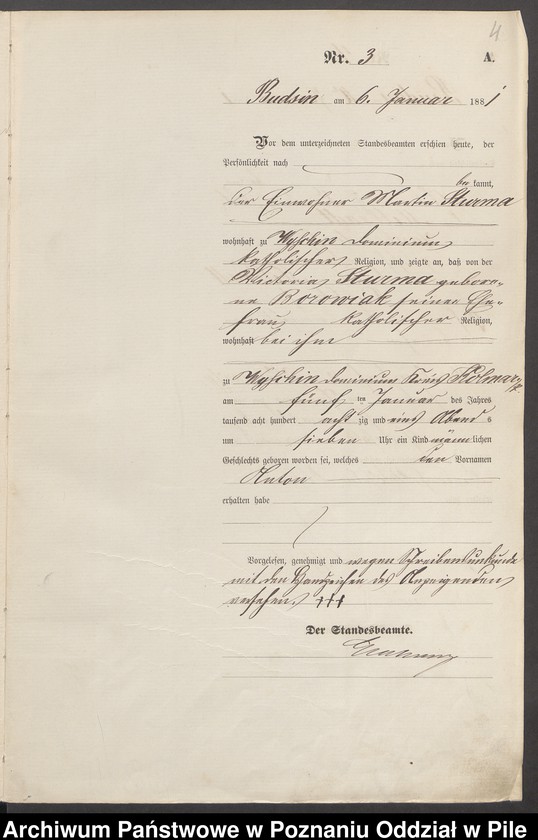 4
Nr. 3 A.
Budsin am 6. Januar 1881
Vor dem unterzeichneten Standesbeamten erschien heute, der
Persönlichkeit nach
be kannt,
der Einwohner Martin Sturma
wohnhaft zu Wyschin Dominium
katholischer Religion, und zeigte an, daß von der
Victoria Sturma gebore-
ne Borowiak seiner Ehe-
frau katholischer Religion,
wohnhaft bei ihm
zu Wyschin Dominium Kreis Kolmar
am fünf ten Januar des Jahres
tausend acht hundert acht zig und eins Abend s
um sieben Uhr ein Kind männ lichen
Geschlechts geboren worden sei, welches den Vornamen
Anton
erhalten habe
Vorgelesen, genehmigt und wegen Schreibensunkunde
mit den Handzeichen des Anzeigenden
versehen. †††
Der Standesbeamte.
Archiwum Państwowe w Poznaniu Oddział w Pile